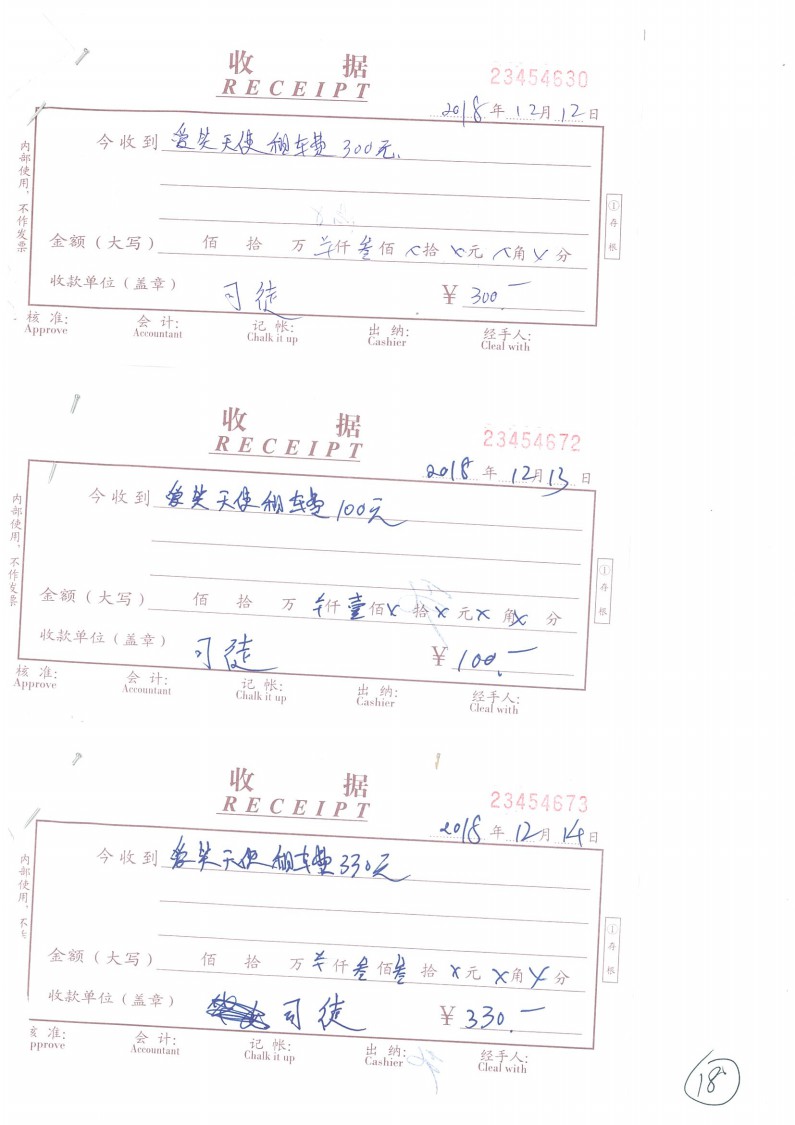 收 据
RECEIPT
23454630
2018年12月12日
今收到 爱笑天使租车费300元.
内部使用，不作发票
①存根
金额（大写） 佰 拾 万 仟叁佰 ×拾 ×元 ×角 × 分
收款单位（盖章） 司徒 ¥ 300.一
核 准: 会 计: 记 帐: 出 纳: 经手人:
Approve Accountant Chalk it up Cashier Cleal with
收 据
RECEIPT
23454672
2018年12月13日
今收到 爱笑天使租车费100元
内部使用，不作发票
①存根
金额（大写） 佰 拾 万 仟壹佰× 拾× 元× 角× 分
收款单位（盖章） 司徒 ¥ 100.一
核 准: 会 计: 记 帐: 出 纳: 经手人:
Approve Accountant Chalk it up Cashier Cleal with
收 据
RECEIPT
23454673
2018年12月14日
今收到 爱笑天使租车费330元
内部使用，不
①存根
金额（大写） 佰 拾 万 仟叁佰叁 拾 ×元 ×角× 分
收款单位（盖章） 司徒 ¥ 330.一
准: 会 计: 记 帐: 出 纳: 经手人:
pprove Accountant Chalk it up Cashier Cleal with
18